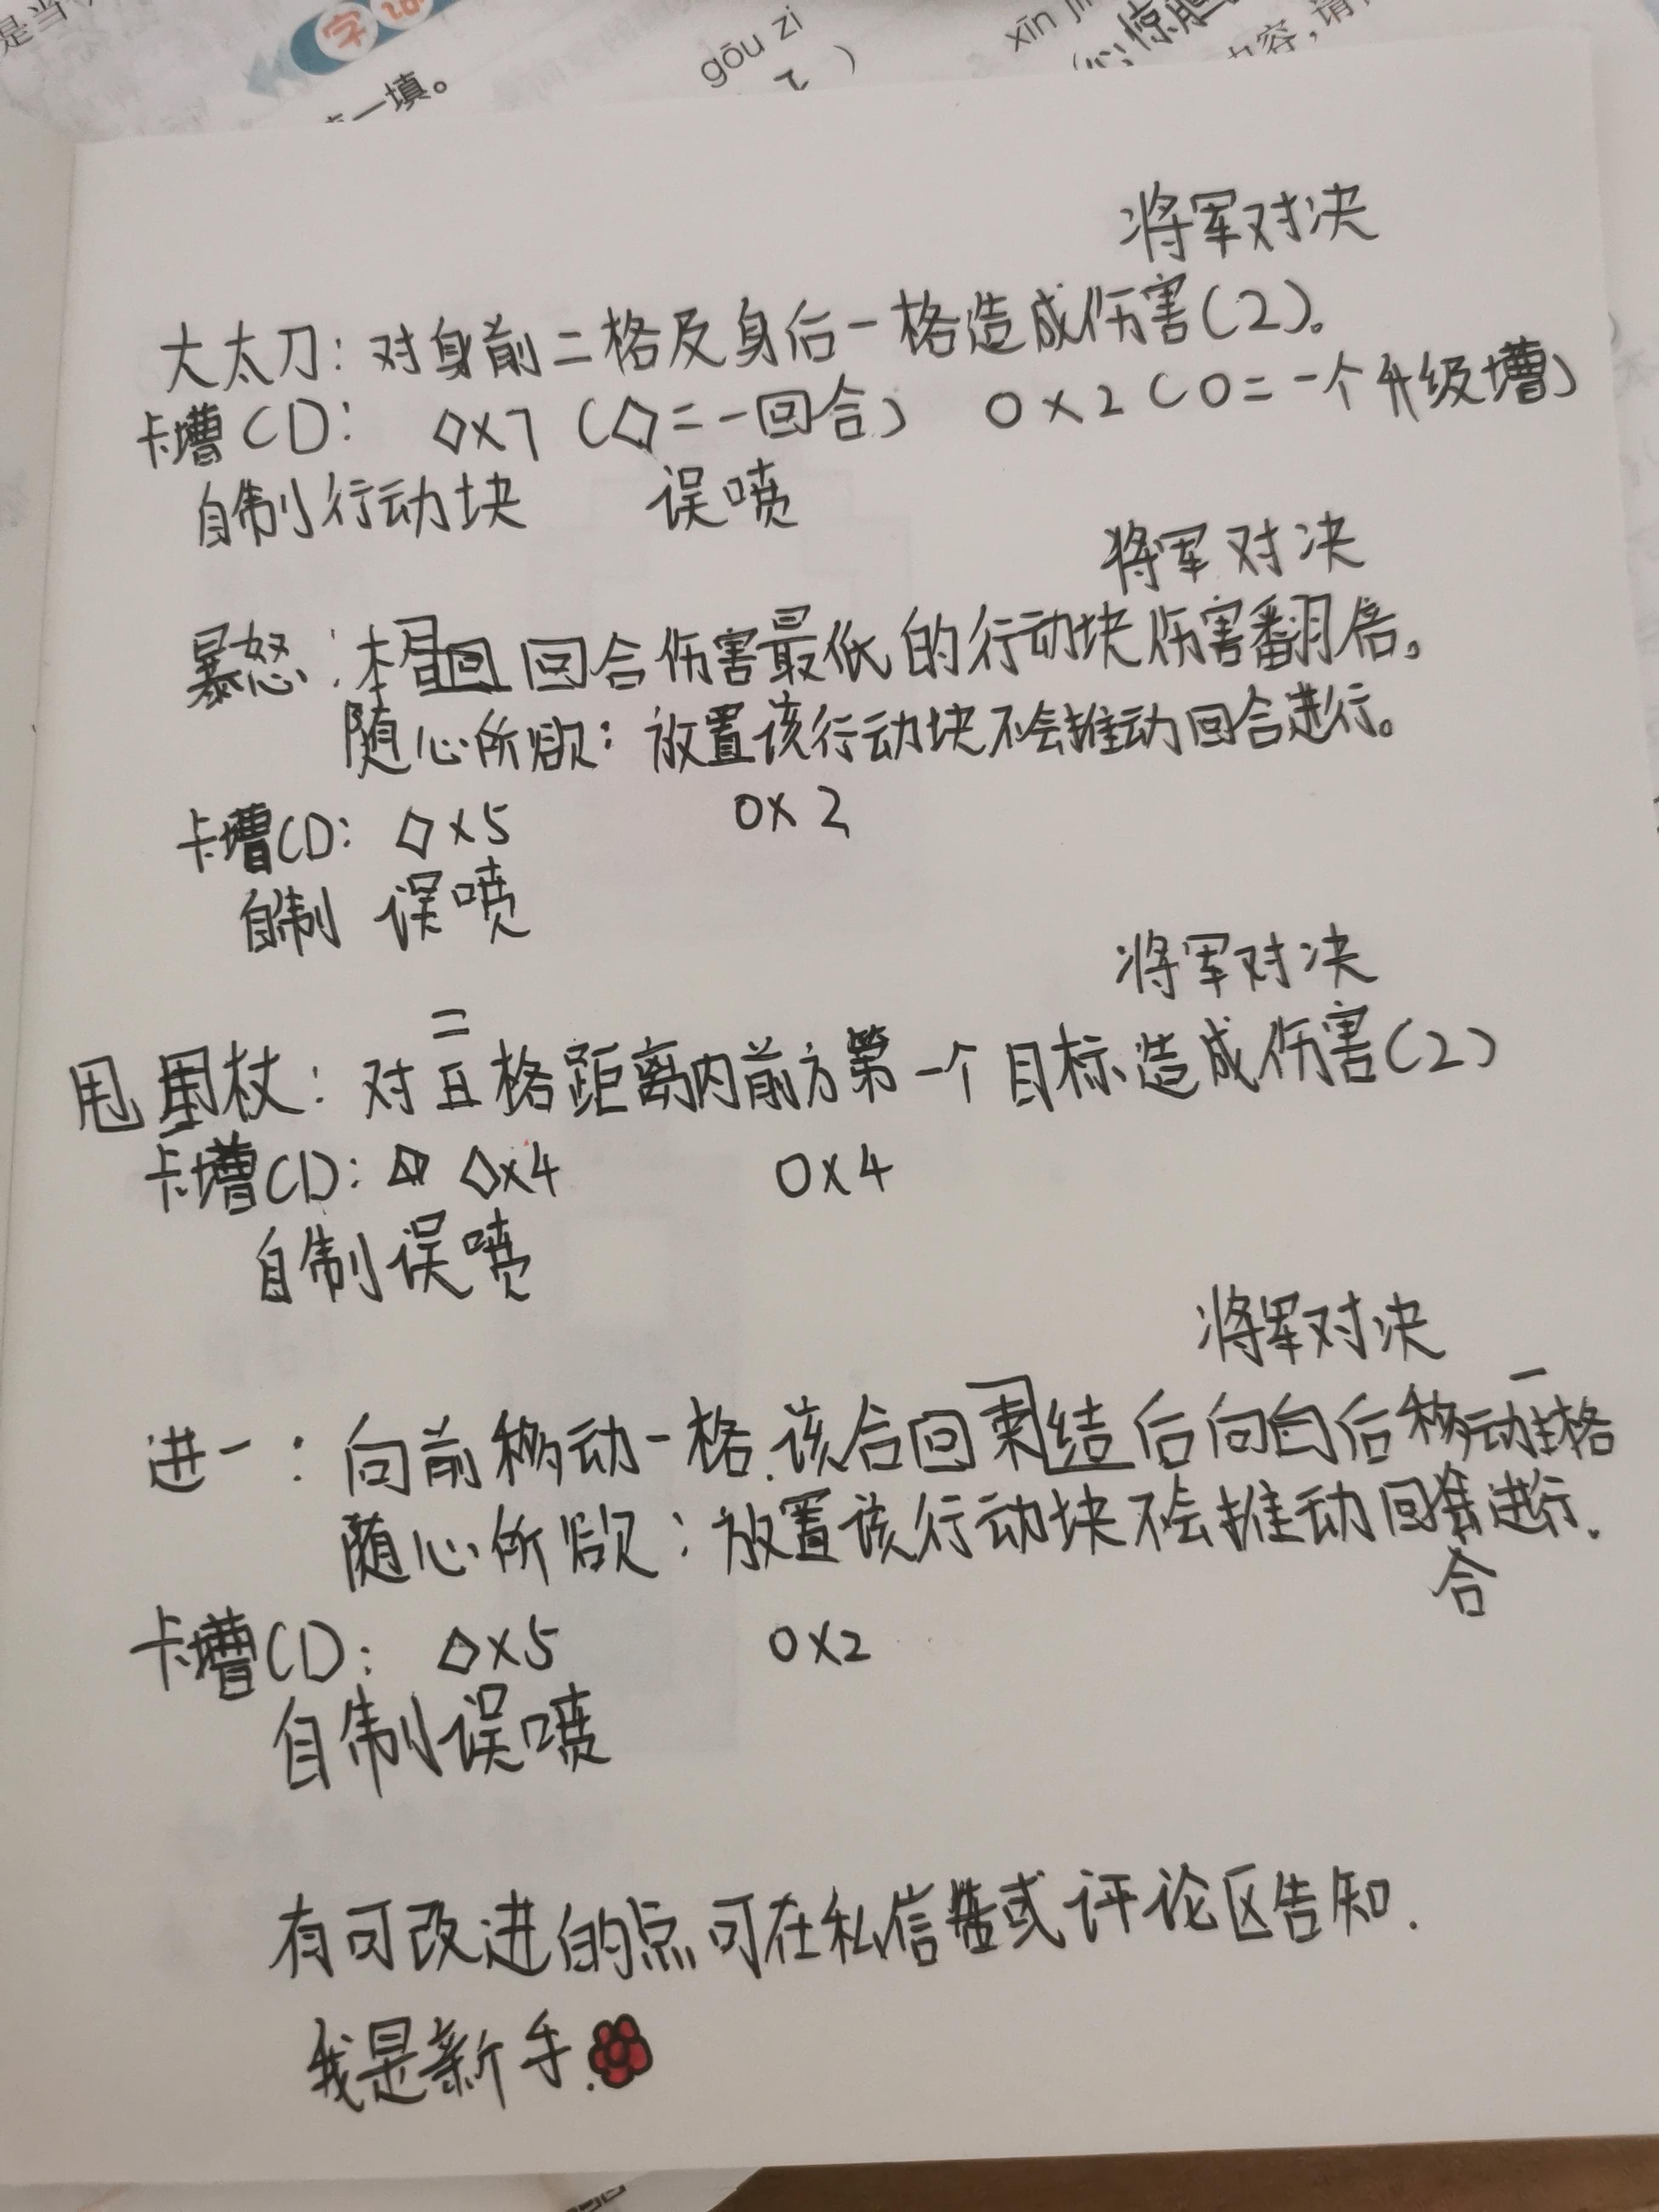 是当
字
gōu zi
xīn
惊胆
一填。
内容,请
将军对决
大太刀:对身前二格及身后一格造成伤害(2)。
卡槽CD: ◇×7 (◇=一回合) O×2 (O=一个升级槽)
自制行动块 误喷
将军对决
暴怒:本回合伤害最低的行动块伤害翻倍。
随心所欲:放置该行动块不会推动回合进行。
卡槽CD: ◇×5 O×2
自制 误喷
将军对决
甩 杖:对二格距离内前方第一个目标造成伤害(2)
卡槽CD: ◇×4 O×4
自制误喷
将军对决
进一:向前移动一格.该合回结 后向 后移动一格
随心所欲:放置该行动块不会推动回合进行.
卡槽CD: ◇×5 O×2
自制误喷
有可改进的点可在私信或评论区告知.
我是新手.